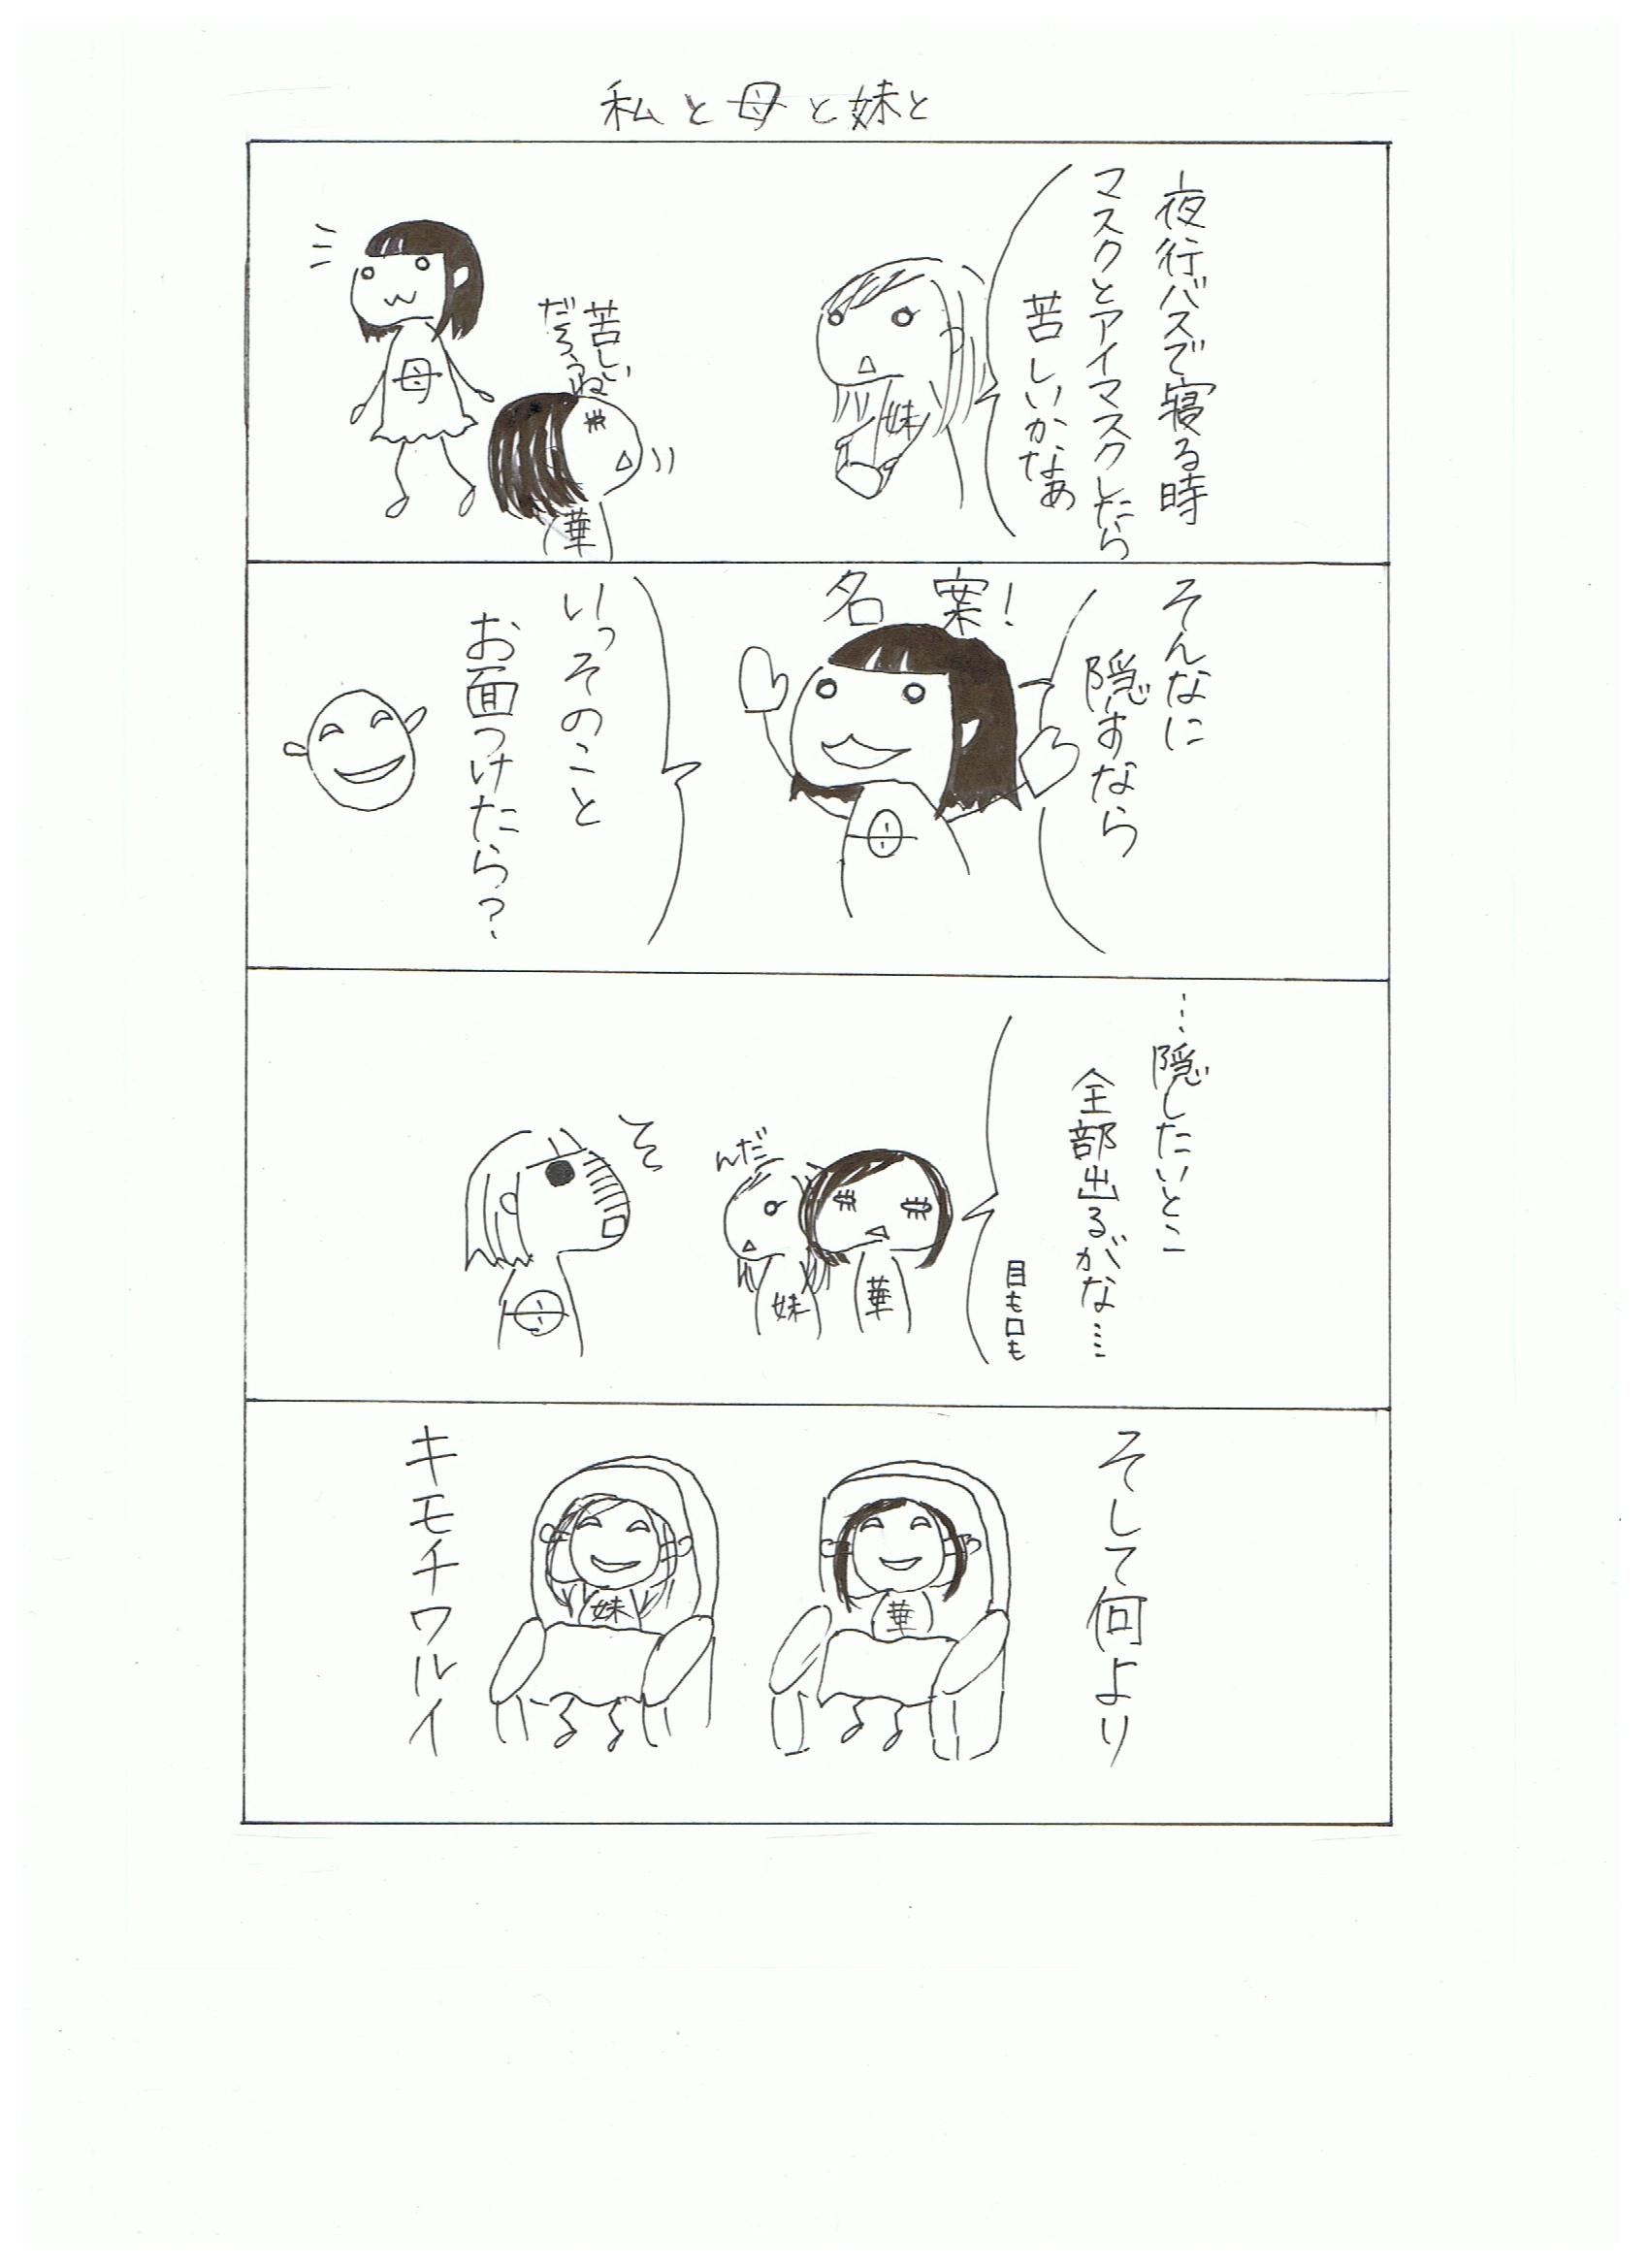 私と母と妹と
夜行バスで寝る時
マスクとアイマスクしたら
苦しいかなぁ
妹
苦しい
だろうね
母
華
そんなに
隠すなら
名案!
母
いっそのこと
お面つけたら?
…隠したいとこ
全部出るがな……
目も口も
華
んだ
妹
母
そして何より
華
妹
キモチワルイ